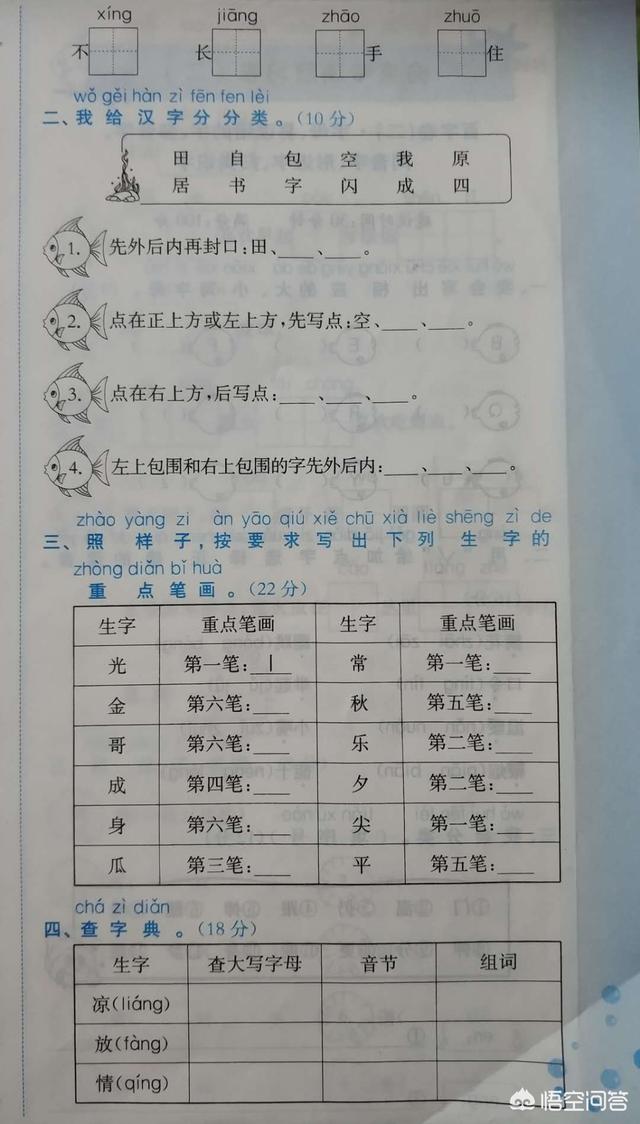 xíng jiāng zhāo zhuō
不 长 手 住
wǒ gěi hàn zì fēn fen lèi
二、我 给 汉 字 分 分 类 。(10 分)
田 自 包 空 我 原
居 书 字 闪 成 四
1. 先外后内再封口:田、____、____。
2. 点在正上方或左上方,先写点:空、____、____。
3. 点在右上方,后写点:____、____、____。
4. 左上包围和右上包围的字先外后内:____、____、____。
zhào yàng zi àn yāo qiú xiě chū xià liè shēng zì de
三、照 样 子,按 要 求 写 出 下 列 生 字 的
zhòng diǎn bǐ huà
重 点 笔 画 。(22 分)
生字 重点笔画 生字 重点笔画
光 第一笔:丨 常 第一笔:____
金 第六笔:____ 秋 第五笔:____
哥 第六笔:____ 乐 第二笔:____
成 第四笔:____ 夕 第二笔:____
身 第六笔:____ 尖 第一笔:____
瓜 第三笔:____ 平 第五笔:____
chá zì diǎn
四、查 字 典 。(18 分)
生字 查大写字母 音节 组词
凉(liáng)
放(fàng)
情(qíng)
悟空问答